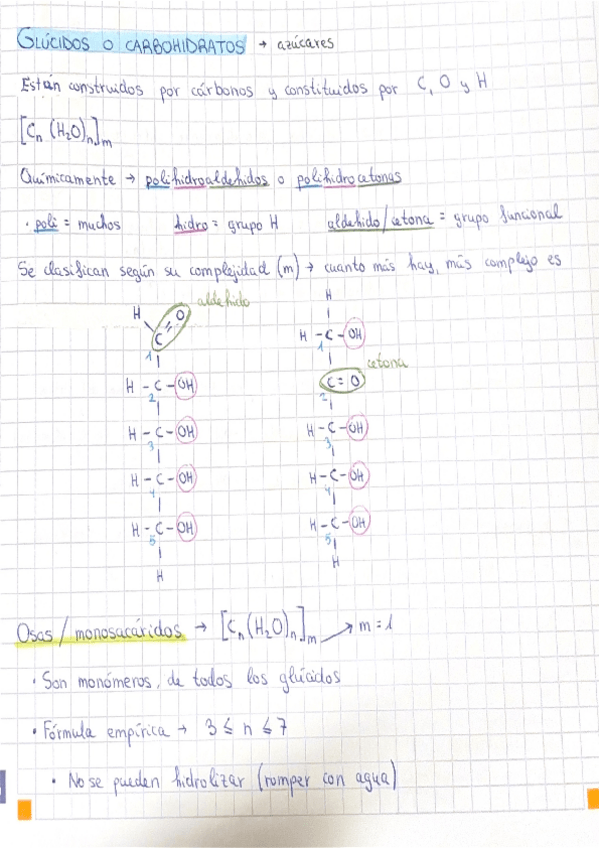 GLÚCIDOS O CARBOHIDRATOS → azúcares
Están construidos por carbonos y constituidos por C, O y H
[Cn (H2O)n]m
Químicamente → polihidroaldehidos o polihidrocetonas
· poli = muchos hidro = grupo H aldehido/cetona = grupo funcional
Se clasifican según su complejidad (m) → cuanto más hay, más complejo es
aldehido
H O
C
1
H - C - OH
2
H - C - OH
3
H - C - OH
4
H - C - OH
5
H
H
H - C - OH
1
cetona
C = O
2
H - C - OH
3
H - C - OH
4
H - C - OH
5
H
Osas / monosacáridos → [Cn (H2O)n]m → m = 1
· Son monómeros, de todos los glúcidos
· Fórmula empírica → 3 ≤ n ≤ 7
· No se pueden hidrolizar (romper con agua)